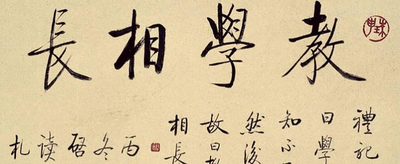 教學相長
禮記
曰學
知不
然後
故曰教
相長
丙
冬
啓
读
札